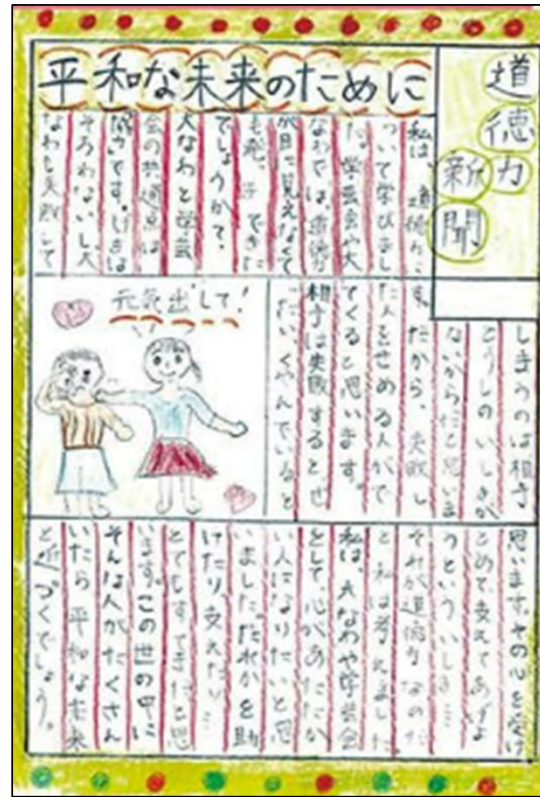 道徳力
新聞
平和な未来のために
私は、道徳力に
ついて学びまし
た。学芸会や大
なわでは、道徳力
が目に見えなくて
も発 できた
でしょうか?
大なわと学芸
会の共通点は
協力です。げきは
そろわないし、大
なわも失敗して
しまうのは相手
どうしのいしきが
ないからだと思いま
す。だから、失敗し
た人をせめる人がで
てくると思います。
相手は失敗すると、ぜ
ったい、くやんでいると
元気出して!
思います。その心を受け
とめて、支えてあげよ
うといういしき…
それが道徳力なのだ
と私は考えました。
私は、大なわや学芸会
をとして、心があたたか
い人になりたいと思
いました。だれかを助
けたり、支えたり…
とてもすてきだと思
います。この世の中に
そんな人がたくさん
いたら平和な未来
と近づくでしょう。